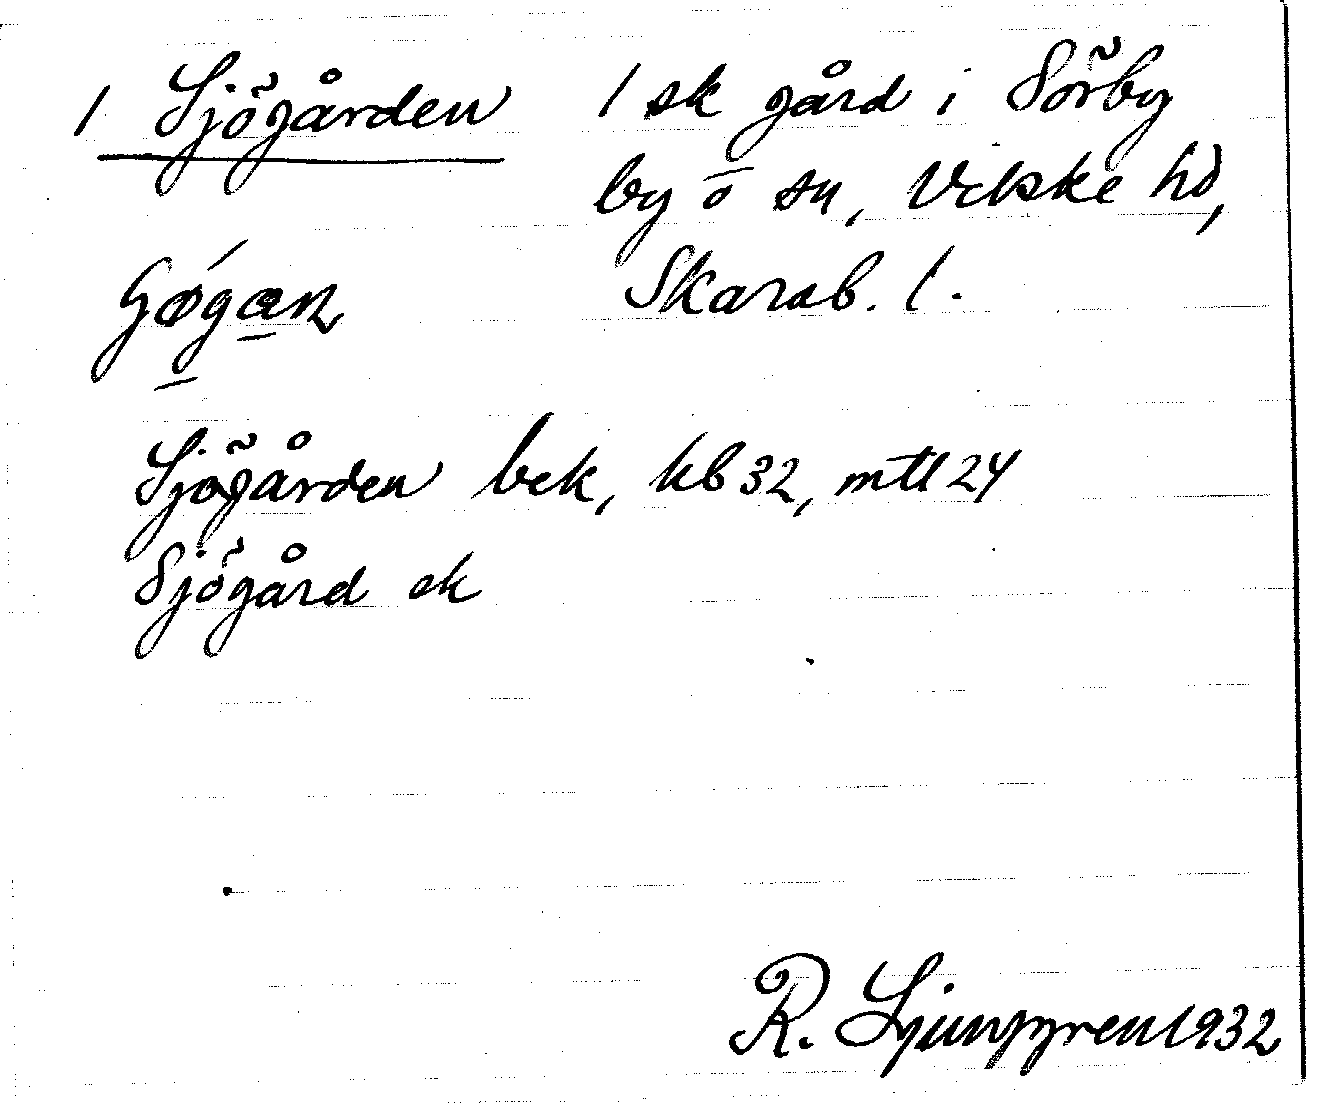 1 Sjögården 1 sk gård i Sörby
by o sn, Vilske hd,
Skarab. l.
Sjögården bek, kb 32, mtl 24
Sjögård ek
R. Ljunggren 1932